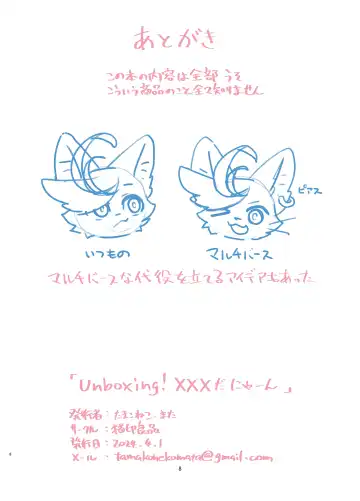 あとがき
この本の内容は全部うそ
こういう商品のこと全て知りません
ピアス
いつもの
マルチバース
マルチバースな代役を立てるアイデアもあった
「Unboxing! XXXだにゃーん」
発行者：たまこねこ・また
サークル：猫印良品
発行日：2024.4.1
メール：tamakonekomata@gmail.com
8